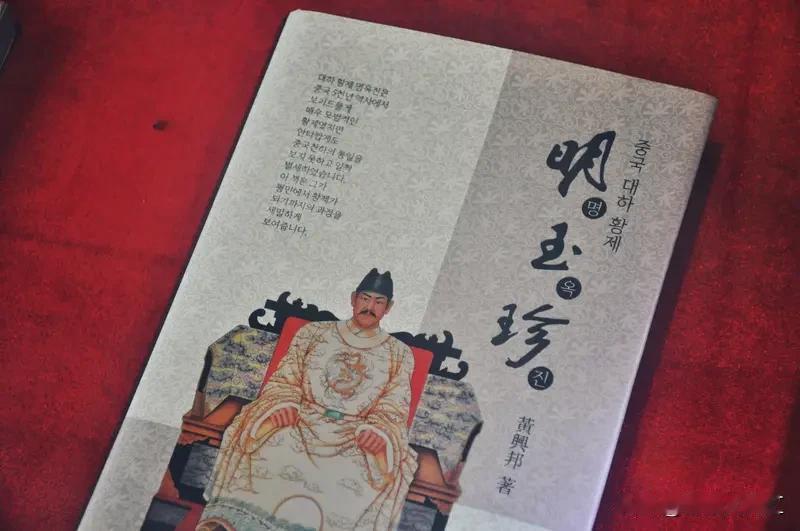 중국 대하 황제
明玉珍
명
옥
진
黃興邦 著
대하 황제 명옥진은
중국 5천년 역사에서
보기드물게
매우 모범적인
황제였지만
안타깝게도
중국천하의 통일을
보지 못하고 일찍
별세하였습니다.
이 책은 그가
평민에서 황제가
되기까지의 과정을
세밀하게
보여줍니다.